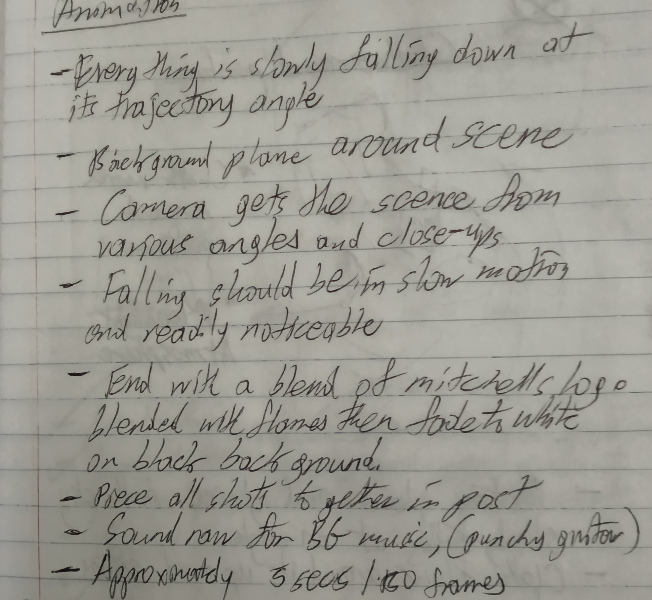 Animation
- Everything is slowly falling down at
its trajectory angle
- Background plane around scene
- Camera gets the scence from
various angles and close-ups
- Falling should be in slow motion
and readily noticeable
- End with a blend of mitchells logo
blended with flames then fade to white
on black background.
- Piece all shots together in post
- Sound raw for BG music, (punchy guitar)
- Approximately 5 secs / 150 frames